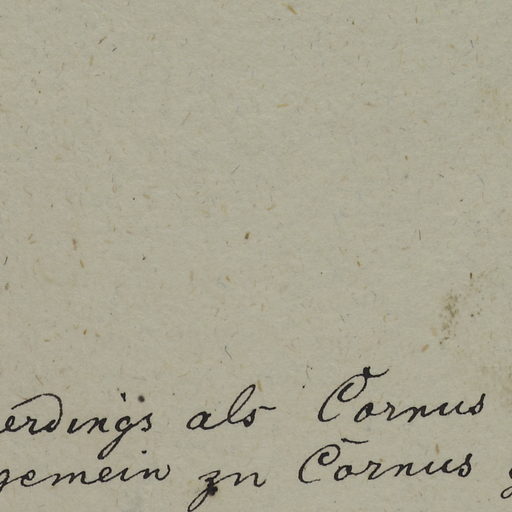 erdings als Cornus
gemein zu Cornus